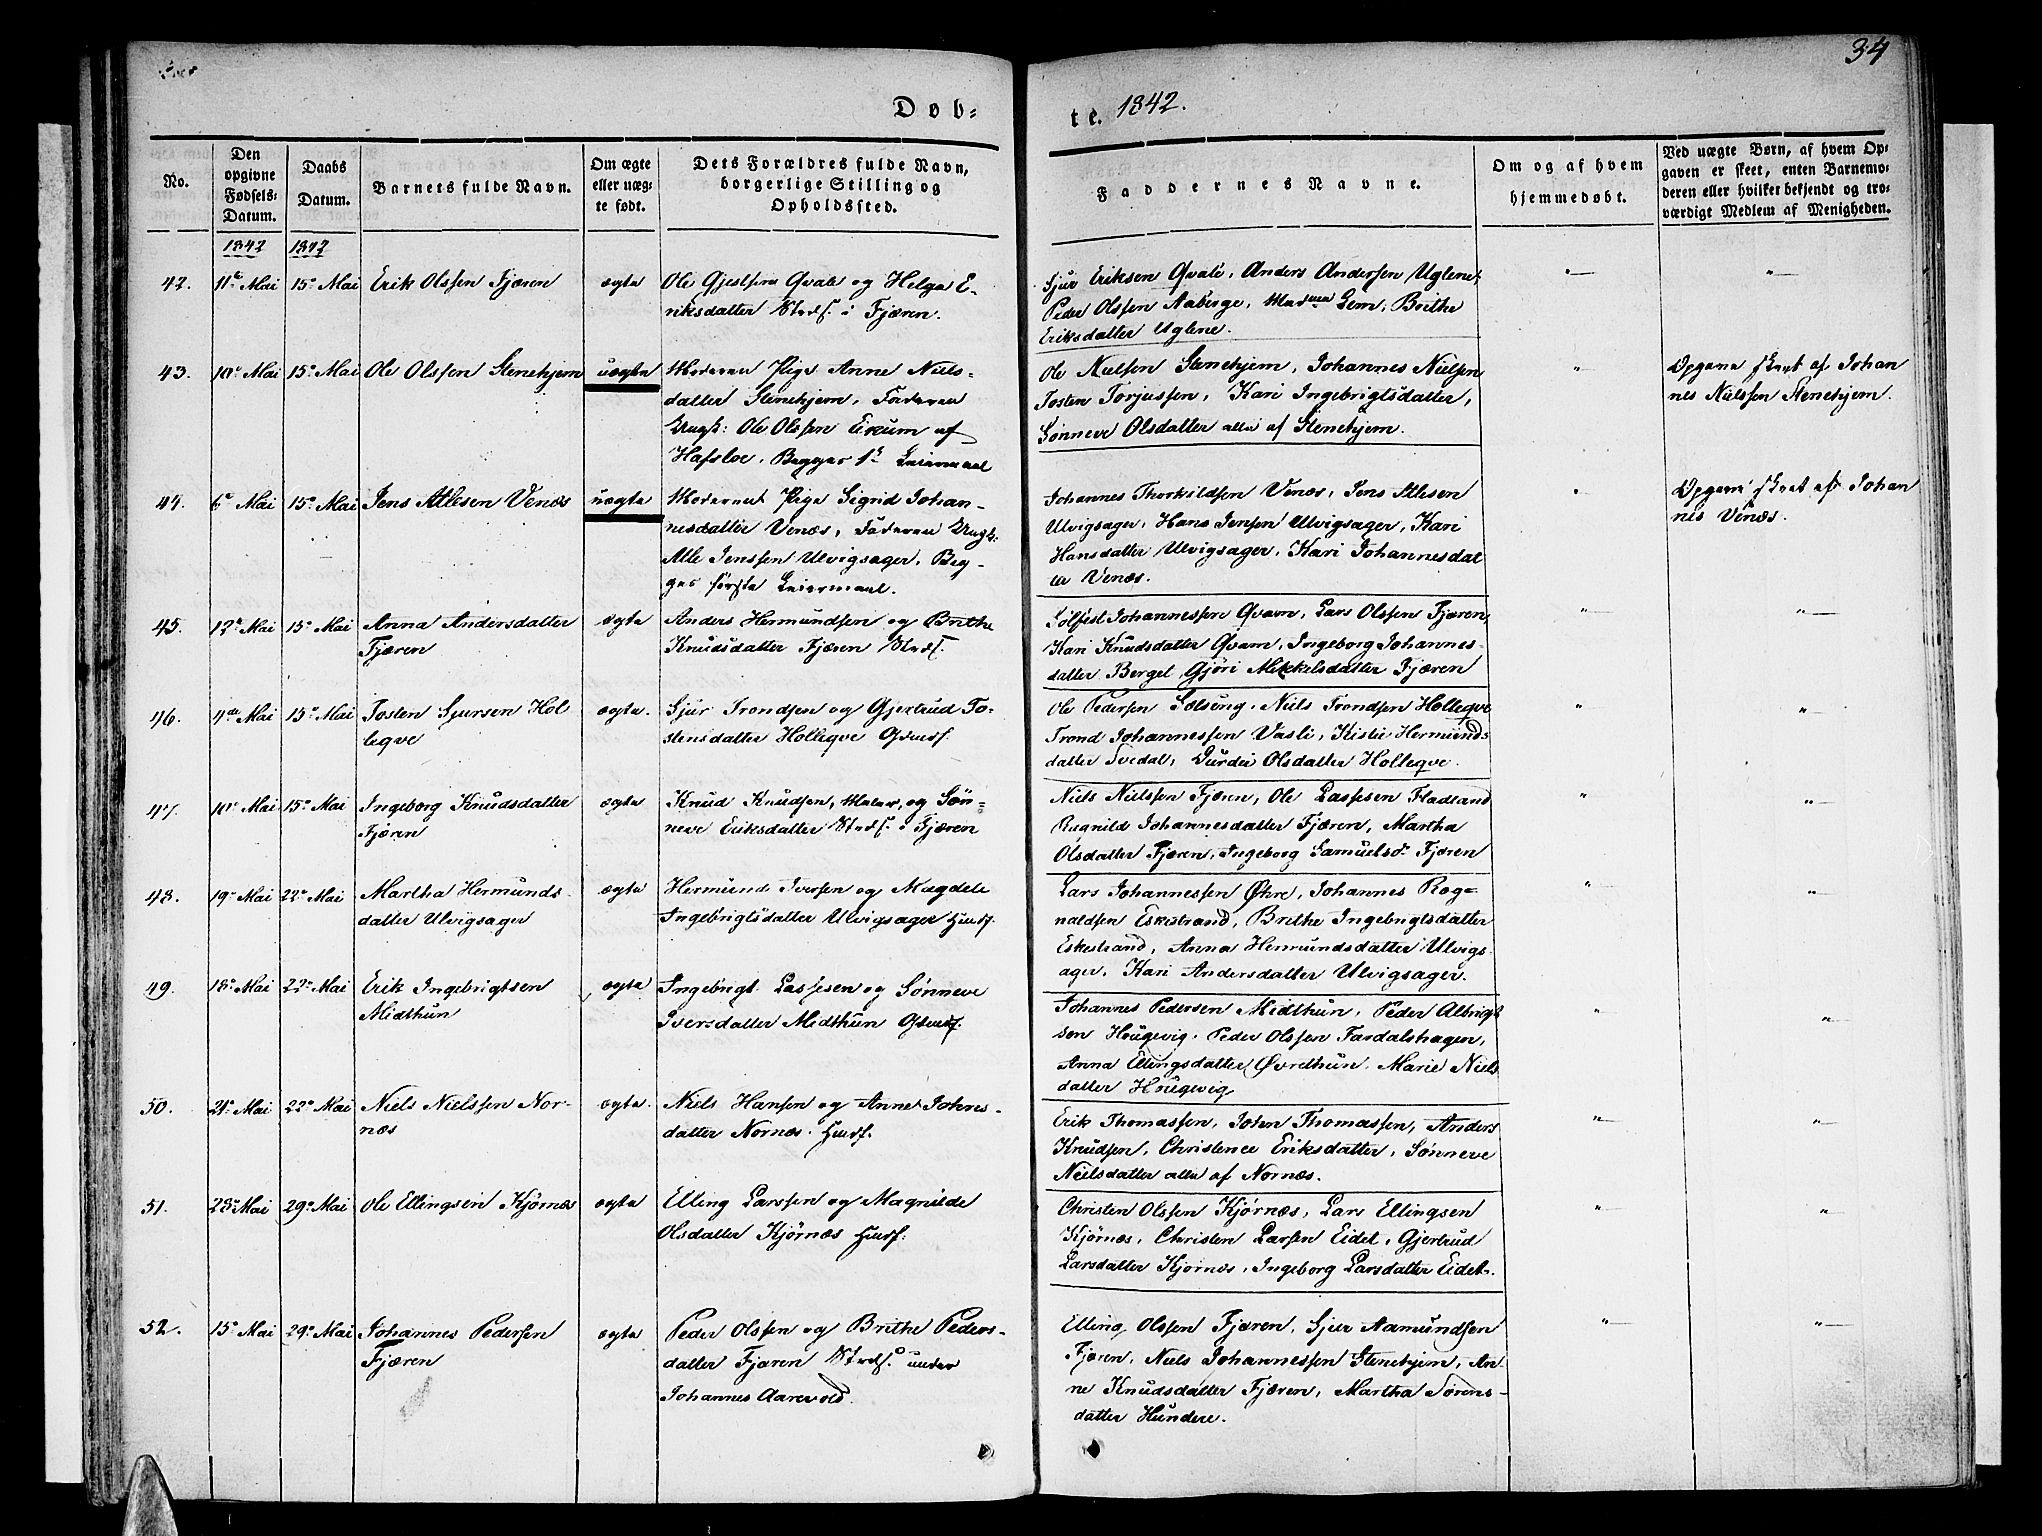 34
Døb-
te. 1842.
No.
Den opgivne Fødsels-Datum.
Daabs Datum.
Barnets fulde Navn.
Om ægte eller uæg-te født.
Dets Forældres fulde Navn, borgerlige Stilling og Opholdssted.
Faddernes Navne.
Om og af hvem hjemmedøbt.
Ved uægte Børn, af hvem Op-gaven er skeet, enten Barnemo-deren eller hvilket bekjendt og tro-værdigt Medlem af Menigheden.
1842 1842
42. 11te Mai 15e Mai Erik Olssen Fjæren ægte Ole Gjestsen Qvale og Helga E-
riksdatter Strds. i Fjæren.
Sjur Eriksen Qvale, Anders Andersen Uglene,
Peder Olssen Aaberge, Mad. Lem, Brithe
Eriksdatter Uglene.
43. 10e Mai 15e Mai Ole Olssen Stenehjem uægte Moderen Pige Anne Niels-
datter Stenehjem, Faderen
Ungk: Ole Olssen Eikum af
Hafsloe. Begges 1ste Leiermaal
Ole Nielsen Stenehjem, Johannes Nielsen
Tosten Torjussen, Kari Ingebrigtsdatter,
Sønneve Olsdatter alle af Stenehjem.
Opgave skeet af Johan
nes Nielssen Stenehjem.
44. 6e Mai 15e Mai Jens Atlesen Venæs uægte Moderen Pige Sigrid Johan-
nesdatter Venæs, Faderen Ungk:
Atle Jenssen Ulvigsager. Beg-
ges første Leiermaal.
Johannes Thorkildsen Venæs, Jens Atlesen
Ulvigsager, Hans Jensen Ulvigsager, Kari
Hansdatter Ulvigsager, Kari Johannesdat
ter Venæs.
Opgave skeet af Johan
nes Venæs.
45. 12e Mai 15e Mai Anna Andersdatter
Fjæren
ægte Anders Hermundsen og Brithe
Knudsdatter Fjæren Strds.
Johannessen Qvam, Lars Olssen Fjæren,
Kari Knudsdatter Qvam, Ingeborg Johannes-
datter Berget, Gjøri Mikkelsdatter Fjæren
46. 4de Mai 15e Mai Tosten Sjursen Hol
leqve
ægte. Sjur Trondsen og Gjertrud To-
stensdatter Holleqve Gbrds.
Ole Pedersen Sølsung, Niels Trondsen Holleqve
Trond Johannessen Vasli, Kistie Hermunds-
datter Tvedal, Durdei Olsdatter Holleqve.
47. 10e Mai 15e Mai Ingeborg Knudsdatter
Fjæren
ægte Knud Knudsen, Maler, og Søn-
neve Eriksdatter Strds. i Fjæren
Niels Nielssen Fjæren, Ole Lassesen Fladland
Ragnild Johannesdatter Fjæren, Martha
Olsdatter Fjæren, Ingeborg Samuelsdr Fjæren
48. 19e Mai 22e Mai Martha Hermunds-
datter Ulvigsager
ægte Hermund Iversen og Magdeli
Ingebrigtsdatter Ulvigsager Husf.
Lars Johannessen Øhre, Johannes Rog-
naldsen Eskestrand, Brithe Ingebrigtsdatter
Eskestrand, Anna Hermundsdatter Ulvigs-
ager, Kari Andersdatter Ulvigsager.
49. 18e Mai 22e Mai Erik Ingebrigtsen
Midthun
ægte Ingebrigt Lassesen og Sønneve
Iversdatter Midthun Gbrds.
Johannes Pedersen Midthun, Peder Albrigt
sen Hougevig. Peder Olssen Fardalshagen,
Anna Ellingsdatter Øvrethun, Marie Niels
datter Hougevig
50. 21e Mai 22e Mai Niels Nielssen Nor-
næs
ægte. Niels Hansen og Anne Johns-
datter Nornæs. Husf.
Erik Thomassen, John Thomassen, Anders
Knudsen, Christence Eriksdatter, Sønneve
Nielsdatter alle af Nornæs.
51. 28e Mai 29e Mai Ole Ellingsen Kjørnæs ægte Elling Larssen og Magnilde
Olsdatter Kjørnæs Husf.
Christen Olssen Kjørnæs, Lars Ellingsen
Kjørnæs, Christen Larsen Eidet, Gjertrud
Larsdatter Kjørnæs, Ingeborg Larsdatter Eidet.
52. 15e Mai 29e Mai Johannes Pedersen
Fjæren
ægte Peder Olssen og Brithe Peders-
datter Fjæren Strds. under
Johannes Aarevold.
Elling Olssen Fjæren, Sjur Aamundsen
Fjæren, Niels Johannessen Stenehjem, An-
ne Knudsdatter Fjæren, Martha Sørens-
datter Hundere.